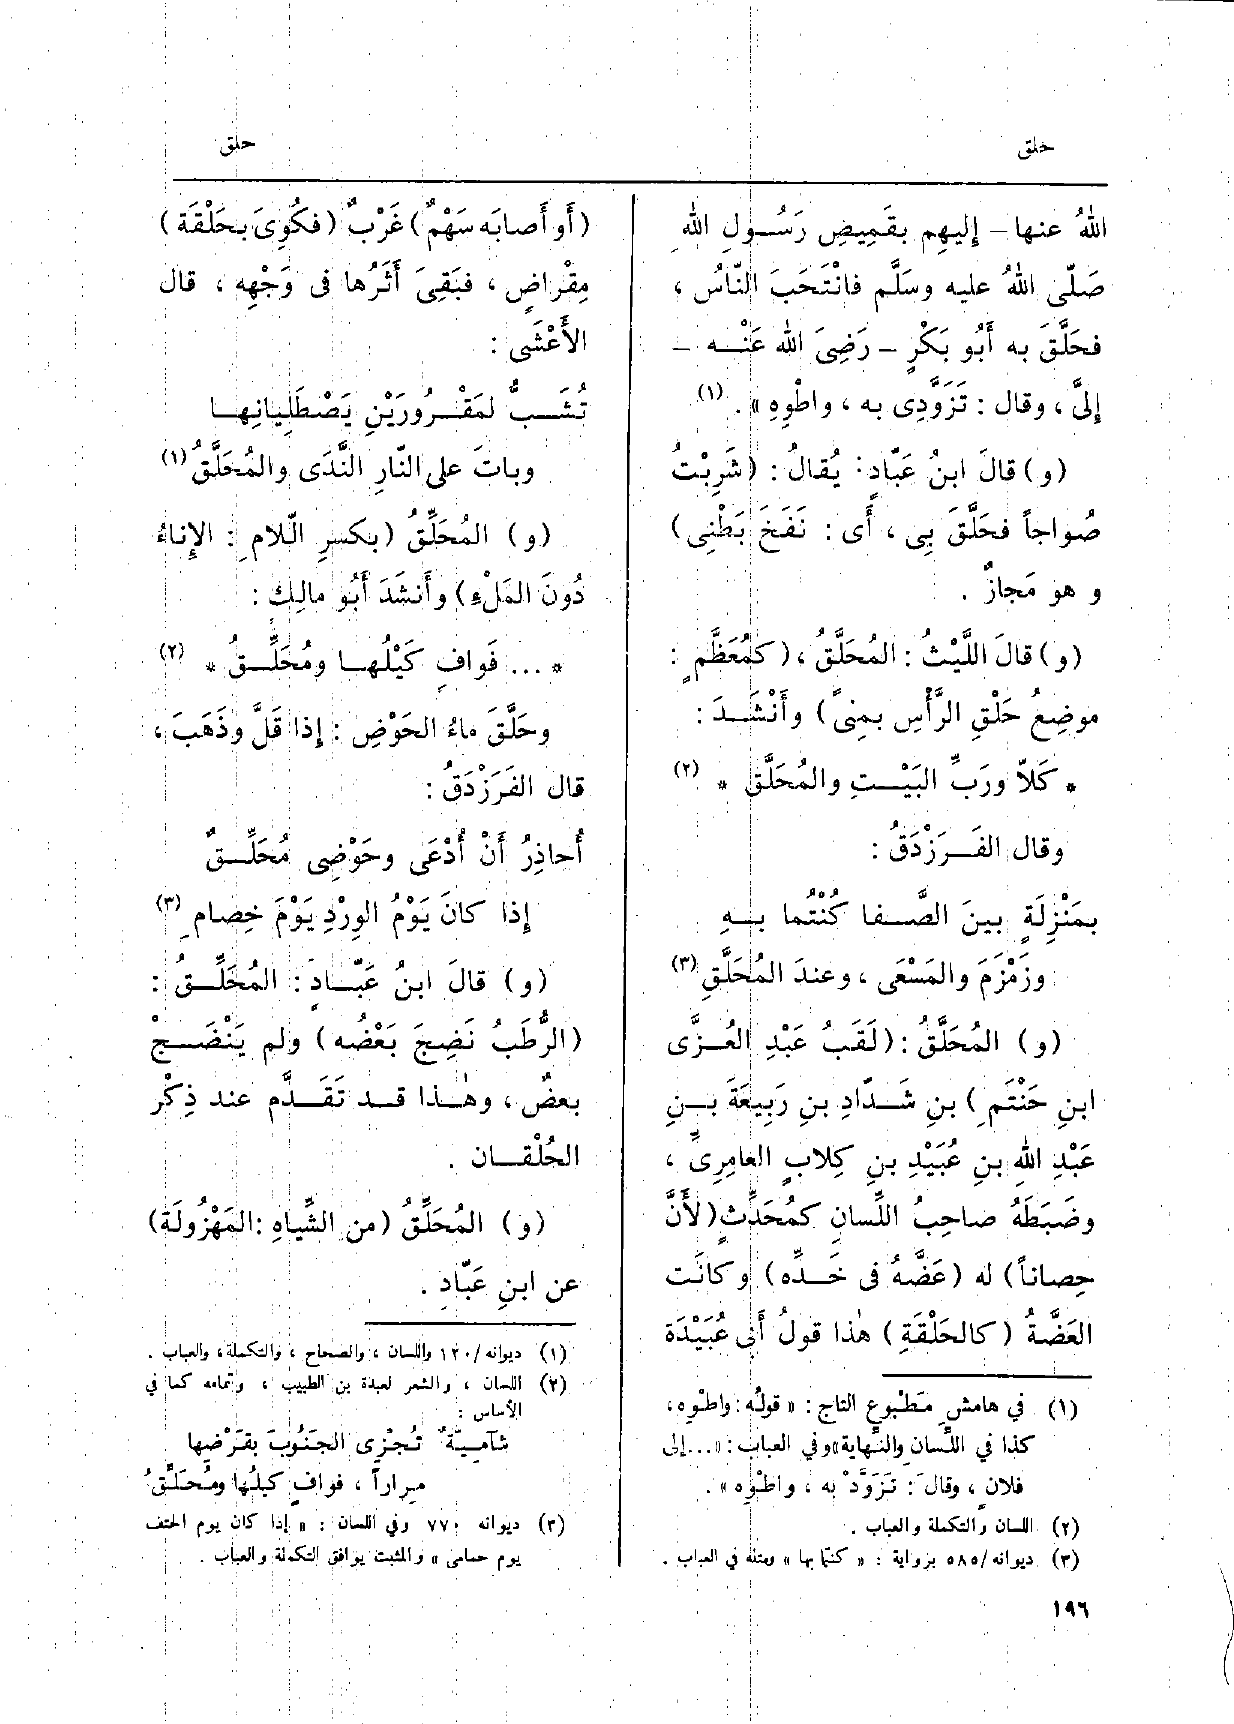 حلق
حلق
اللهُ عنها – إِليهِم بقَمِيصِ رَسُولِ اللهِ
صَلّى اللهُ عليه وسَلَّم فانْتَحَبَ النّاسُ ،
فحَلَّقَ به أَبُو بَكْرٍ – رَضِىَ الله عَنْه –
إِلىَّ ، وقال : تَزَوَّدِى به ، واطْوِهِ » . (١)
(و) قالَ ابنُ عَبّادٍ : يُقالُ : (شَرِبْتُ
صُواجاً فحَلَّقَ بِى ، أَى : نَفَخَ بَطْنِى)
و هو مَجازٌ .
(و) قالَ اللَّيْثُ : المُحَلَّقُ ، (كمُعَظَّمٍ :
موضِعُ حَلْقِ الرَّأْسِ بمِنىً) وأَنْشَدَ :
* كَلاّ ورَبِّ البَيْتِ والمُحَلَّقِ * (٢)
وقال الفَرَزْدَقُ :
بمَنْزِلَةٍ بينَ الصَّفا كُنْتُما بهِ
وزَمْزَمَ والمَسْعَى ، وعندَ المُحَلَّقِ (٣)
(و) المُحَلَّقُ : (لَقَبُ عَبْدِ العُزَّى
ابنِ حَنْتَمِ) بنِ شَدّادِ بنِ رَبِيعَةَ بنِ
عَبْدِ اللهِ بنِ عُبَيْدِ بنِ كِلابٍ العامِرِىّ ،
وضَبَطَهُ صاحِبُ اللِّسانِ كمُحَدِّثٍ (لأَنَّ
حِصاناً) له (عَضَّهُ فى خَدِّه) وكانَت
العَضَّةُ (كالحَلْقَةِ) هٰذا قولُ أَبى عُبَيْدَة
(١) في هامش مطبوع التاج : « قوله : واطوه ،
كذا في اللسان والنهاية » وفي العباب : « ... إلى
فلان ، وقال : تَزَوَّدْ به ، واطْوِه » .
(٢) اللسان والتكملة والعباب .
(٣) ديوانه / ٥٨٥ برواية : « كنتما بها » ومثله في العباب .
١٩٦
(أَو أَصابَه سَهْمٌ) غَرْبٌ (فكُوِىَ بحَلْقَة)
مِقْراضٍ ، فبَقِىَ أَثَرُها فى وَجْهِه ، قال
الأَعْشَى :
تُشَبُّ لمَقْرُورَيْنِ يَصْطَلِيانِها
وباتَ على النّارِ النَّدَى والمُحَلَّقُ (١)
(و) المُحَلِّقُ (بكسرِ الّلامِ : الإِناءُ
دُونَ المَلْءِ) وأَنشَدَ أَبُو مالِك :
* ... فَوافٍ كَيْلُها ومُحَلِّقُ * (٢)
وحَلَّقَ ماءُ الحَوْضِ : إِذا قَلَّ وذَهَبَ ،
قال الفَرَزْدَقُ :
أُحاذِرُ أَنْ أُدْعَى وحَوْضِى مُحَلِّقٌ
إِذا كانَ يَوْمُ الوِرْدِ يَوْمَ خِصامِ (٣)
(و) قالَ ابنُ عَبّادٍ : المُحَلِّقُ :
(الرُّطَبُ نَضِجَ بَعْضُه) ولم يَنْضَجْ
بعضٌ ، وهٰذا قد تَقَدَّم عند ذِكْر
الحُلْقان .
(و) المُحَلِّقُ (من الشِّياهِ : المَهْزُولَة)
عن ابنِ عَبّادٍ .
(١) ديوانه / ١٢٠ واللسان ، والصحاح ، والتكملة ، والعباب .
(٢) اللسان ، والشعر لعبدة بن الطبيب ، وتمامه كما في
الأساس :
شآمِيَّةٌ تُجْزِى الجَنُوبَ بقَرْضِها
مِراراً ، فوافٍ كيلُها ومُحَلِّقُ
(٣) ديوانه ٧٧٠ وفي اللسان : « إذا كان يوم الحتف
يوم حمامى » والمثبت يوافق التكملة والعباب .